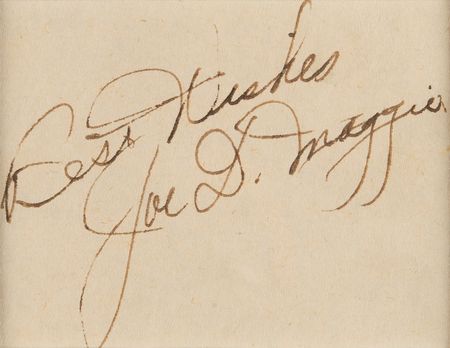 Best Wishes
Joe Di Maggio